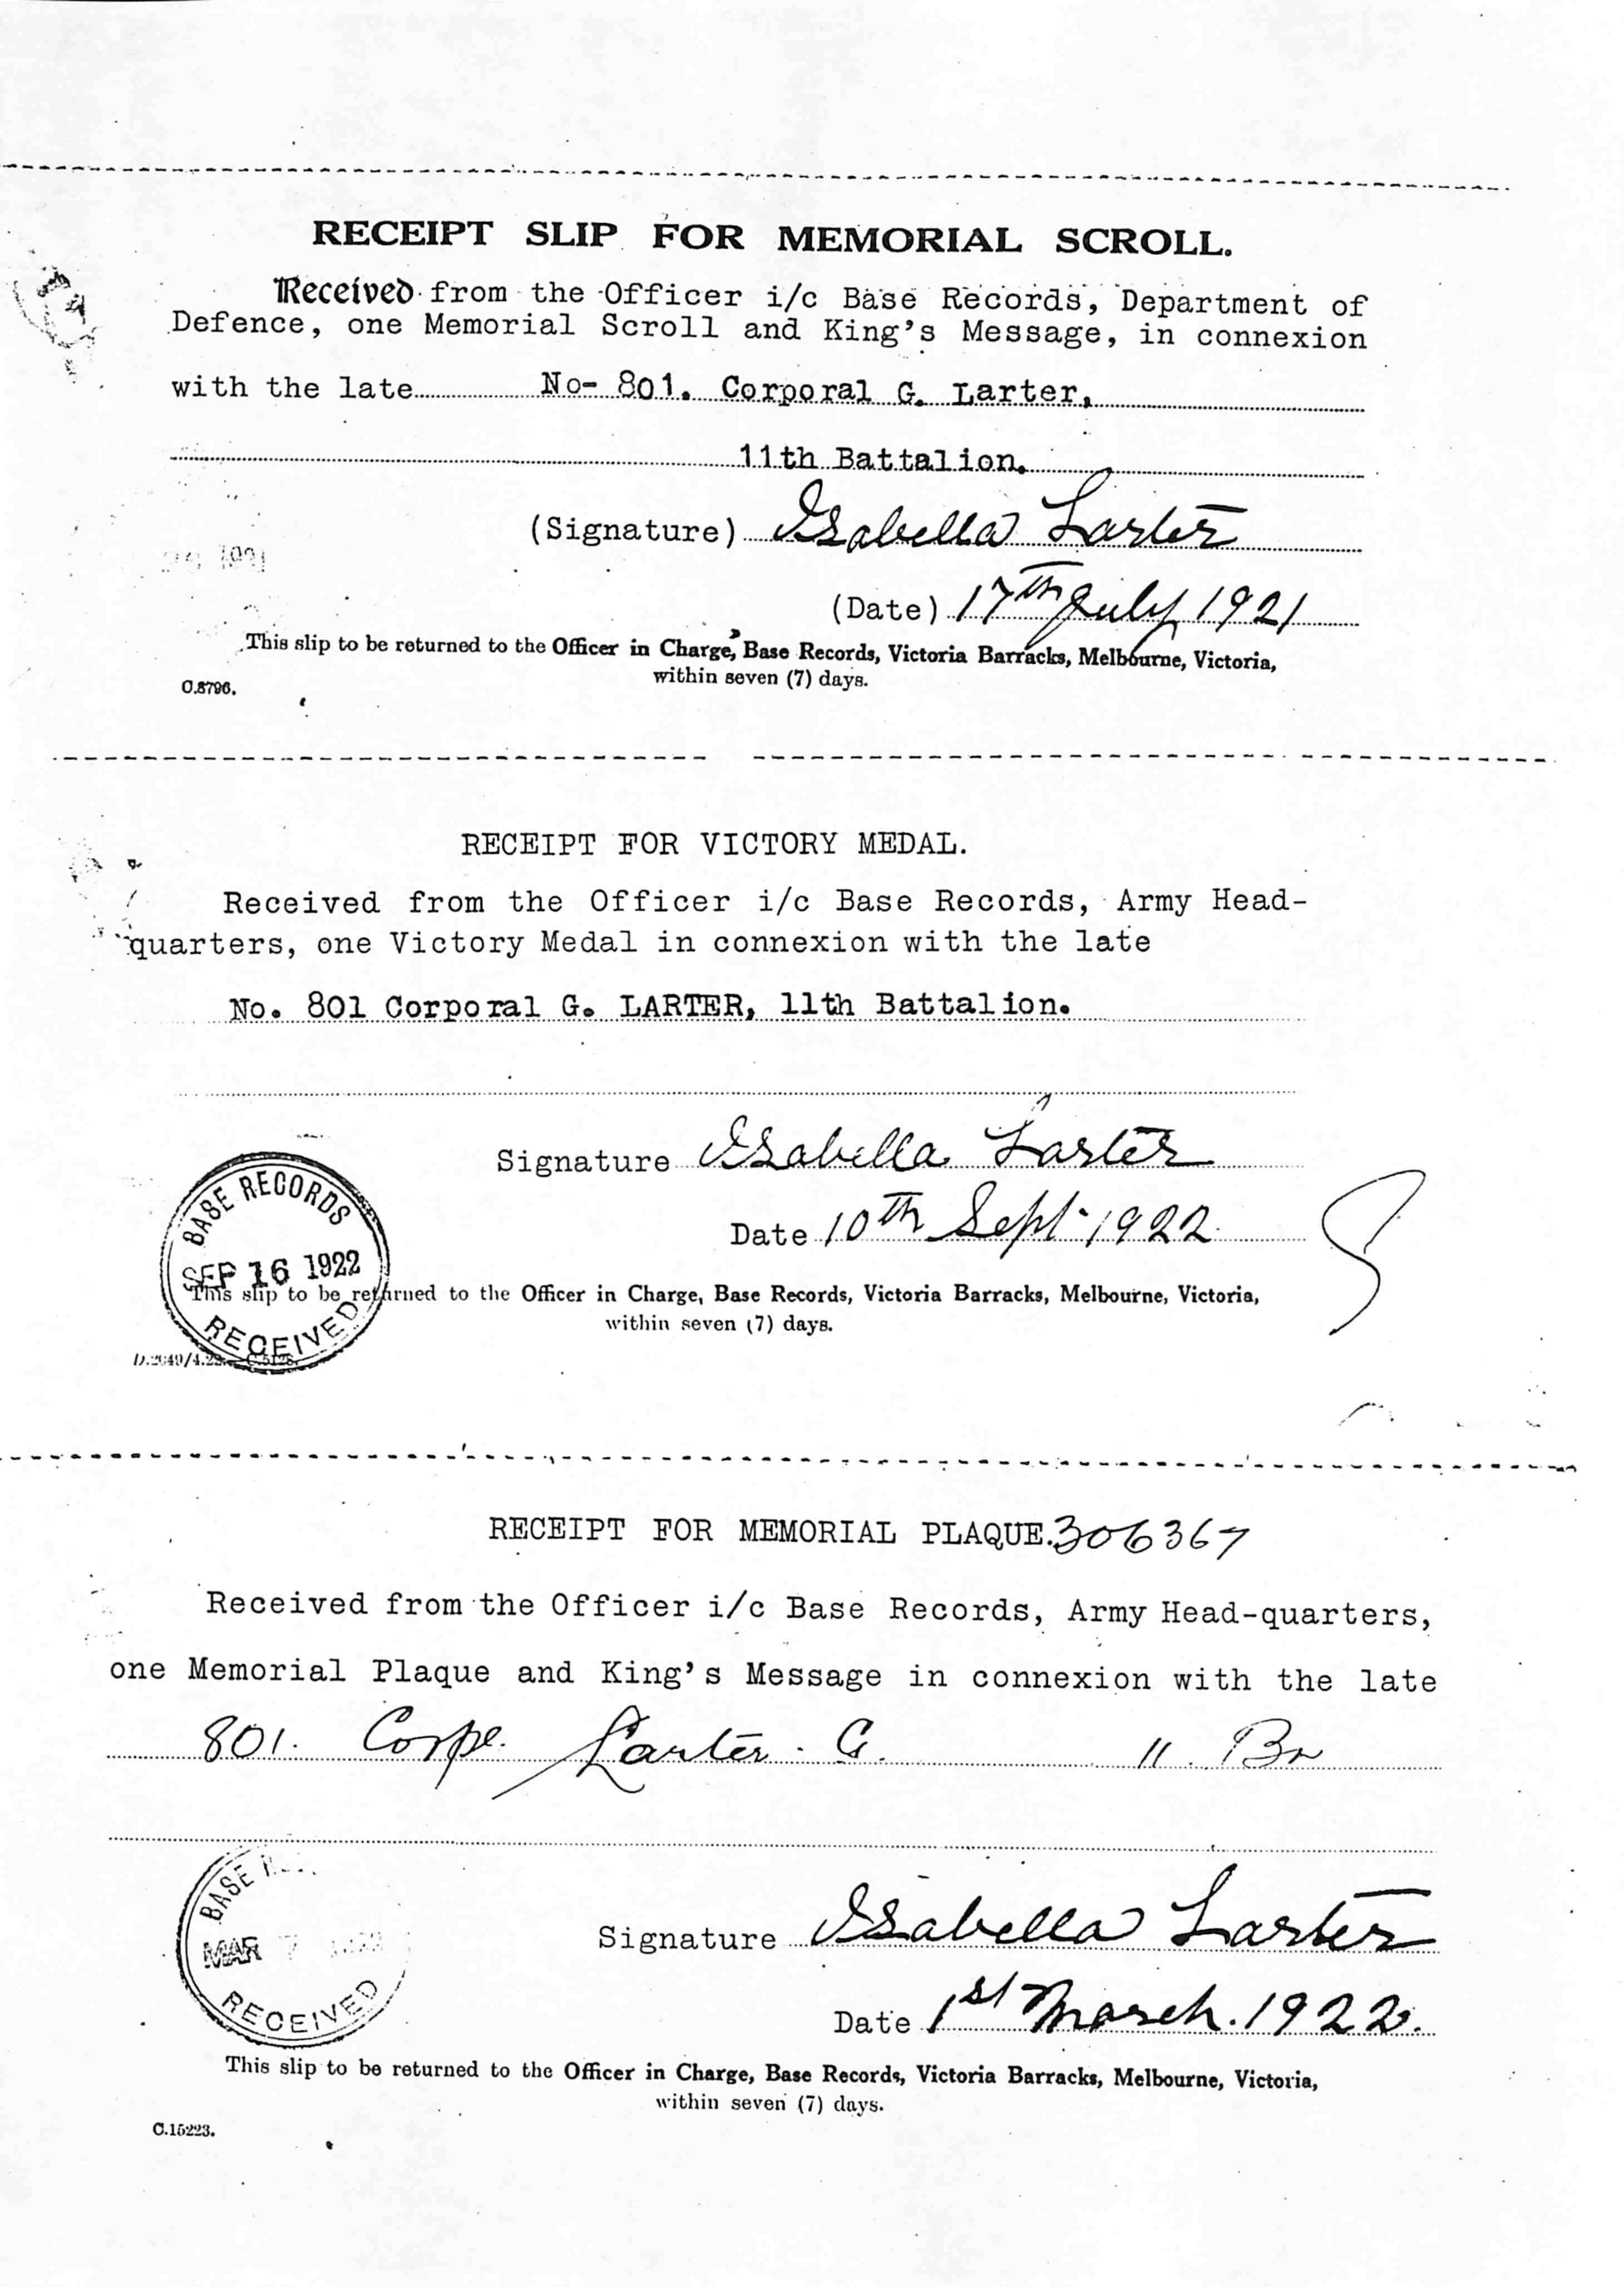 RECEIPT SLIP FOR MEMORIAL SCROLL.
Received from the Officer i/c Base Records, Department of
Defence, one Memorial Scroll and King's Message, in connexion
with the late No- 801. Corporal G. Larter,
11th Battalion.
(Signature) Isabella Larter
(Date) 17th July 1921
This slip to be returned to the Officer in Charge, Base Records, Victoria Barracks, Melbourne, Victoria,
within seven (7) days.
C.8796.
RECEIPT FOR VICTORY MEDAL.
Received from the Officer i/c Base Records, Army Head-
quarters, one Victory Medal in connexion with the late
No. 801 Corporal G. LARTER, 11th Battalion.
Signature Isabella Larter
Date 10th Sept. 1922
BASE RECORDS
SEP 16 1922
RECEIVED
This slip to be returned to the Officer in Charge, Base Records, Victoria Barracks, Melbourne, Victoria,
within seven (7) days.
RECEIPT FOR MEMORIAL PLAQUE. 306367
Received from the Officer i/c Base Records, Army Head-quarters,
one Memorial Plaque and King's Message in connexion with the late
801. Corpl. Larter. G. 11. Bn
BASE
MAR 7
RECEIVED
Signature Isabella Larter
Date 1st March. 1922.
This slip to be returned to the Officer in Charge, Base Records, Victoria Barracks, Melbourne, Victoria,
within seven (7) days.
C.15223.